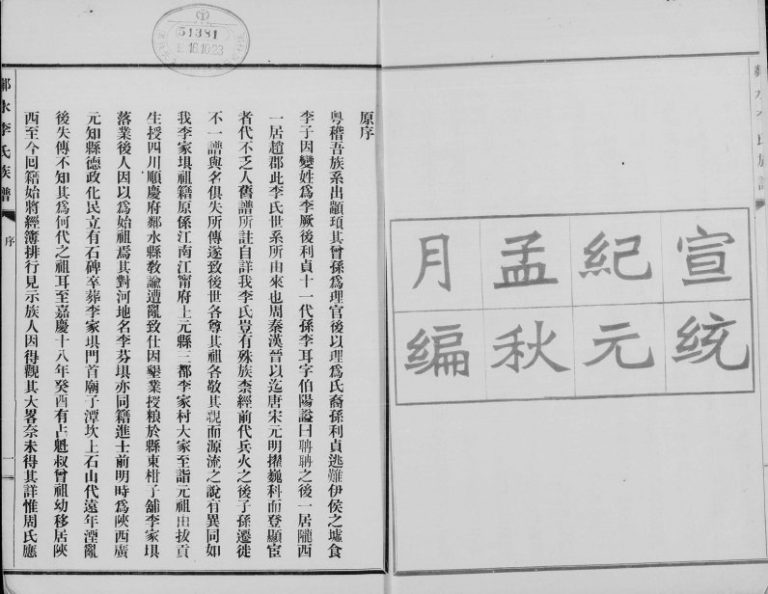 宣統
紀元
孟秋
月編
鄰水李氏族譜
序
一
51381
原序
粵稽吾族系出顓頊其曾孫爲理官後以理爲氏裔孫利貞逃難伊侯之墟食
李子因變姓爲李厥後利貞十一代孫李耳字伯陽謚曰聃聃之後一居隴西
一居趙郡此李氏世系所由來也周秦漢晉以迄唐宋元明擢巍科而登顯宦
者代不乏人舊譜所註自詳我李氏豈有殊族柰經前代兵火之後子孫遷徙
不一譜與名俱失所傳遂致後世各尊其祖各敬其親而源流之說有異同如
我李家埧祖籍原係江南江甯府上元縣三都李家村大家至詣元祖由拔貢
生授四川順慶府鄰水縣教諭遭亂致仕因墾業授粮於縣東柑子舖李家埧
落業後人因以爲始祖焉其對河地名李芬埧亦同籍進士前明時爲陝西廣
元知縣德政化民立有石碑卒葬李家埧門首廟子潭坎上石山代遠年湮亂
後失傳不知其爲何代之祖耳至嘉慶十八年癸酉有占魁叔曾祖幼移居陝
西至今回籍始將經簿排行見示族人因得觀其大畧奈未得其詳惟周氏應